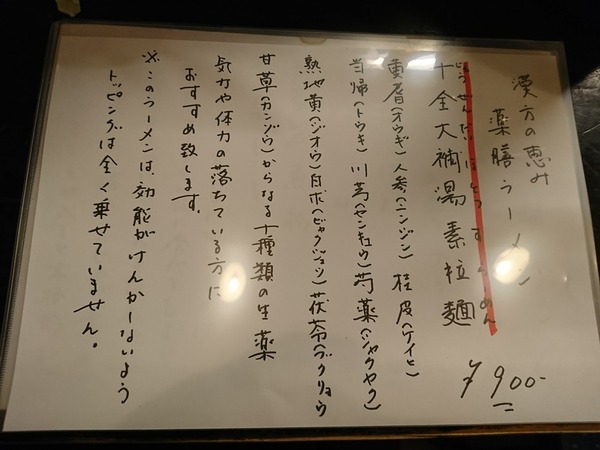 漢方の恵み
薬膳ラーメン
じゅうぜんだいほとうすらーめん
十全大補湯素拉麺
¥900-
黄耆(オウギ)人参(ニンジン)桂皮(ケイヒ)
当帰(トウキ)川芎(センキュウ)芍薬(シャクヤク)
熟地黄(ジオウ)白朮(ビャクジュツ)茯苓(ブクリョウ)
甘草(カンゾウ)からなる十種類の生薬
気力や体力の落ちている方に
おすすめ致します。
※このラーメンは、効能がけんかしないよう
トッピングは全く乗せていません。